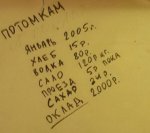 ПОТОМКАМ
ЯНВАРЬ 2005г.
ХЛЕБ 15р.
ВОДКА 80р.
САЛО 120р кг.
ПРОЕЗД 5р пока
САХАР 24р.
ОКЛАД 2000р.